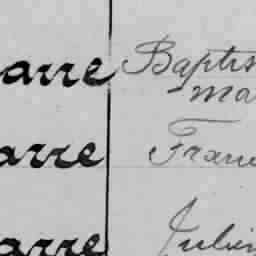 arre Baptis
Ma
arre Franc
arre Julien